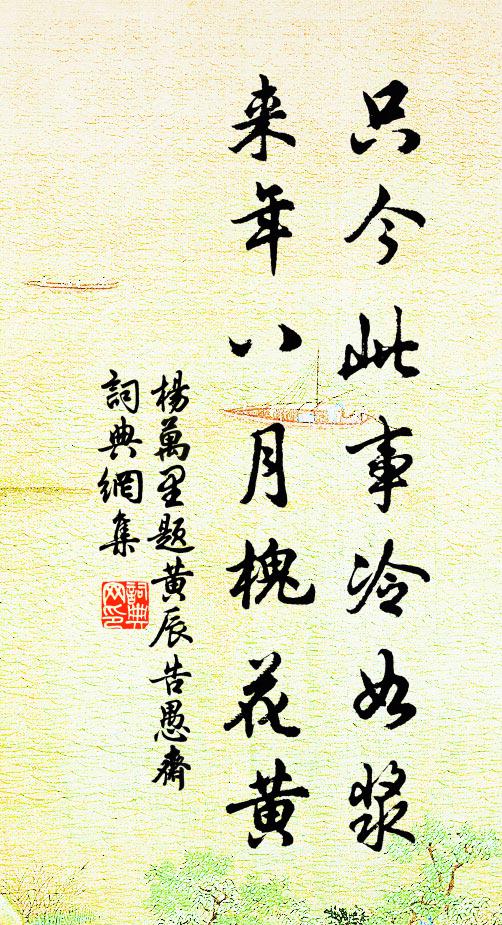 只今此事冷如浆
来年八月槐花黄
楊萬里题黄辰告愚齋
詞典網集
詞典网印